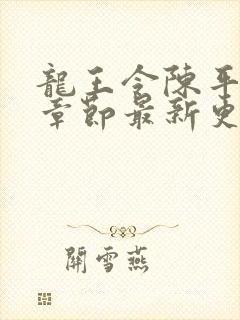 龍王令陳平
章節最新更
關雪燕